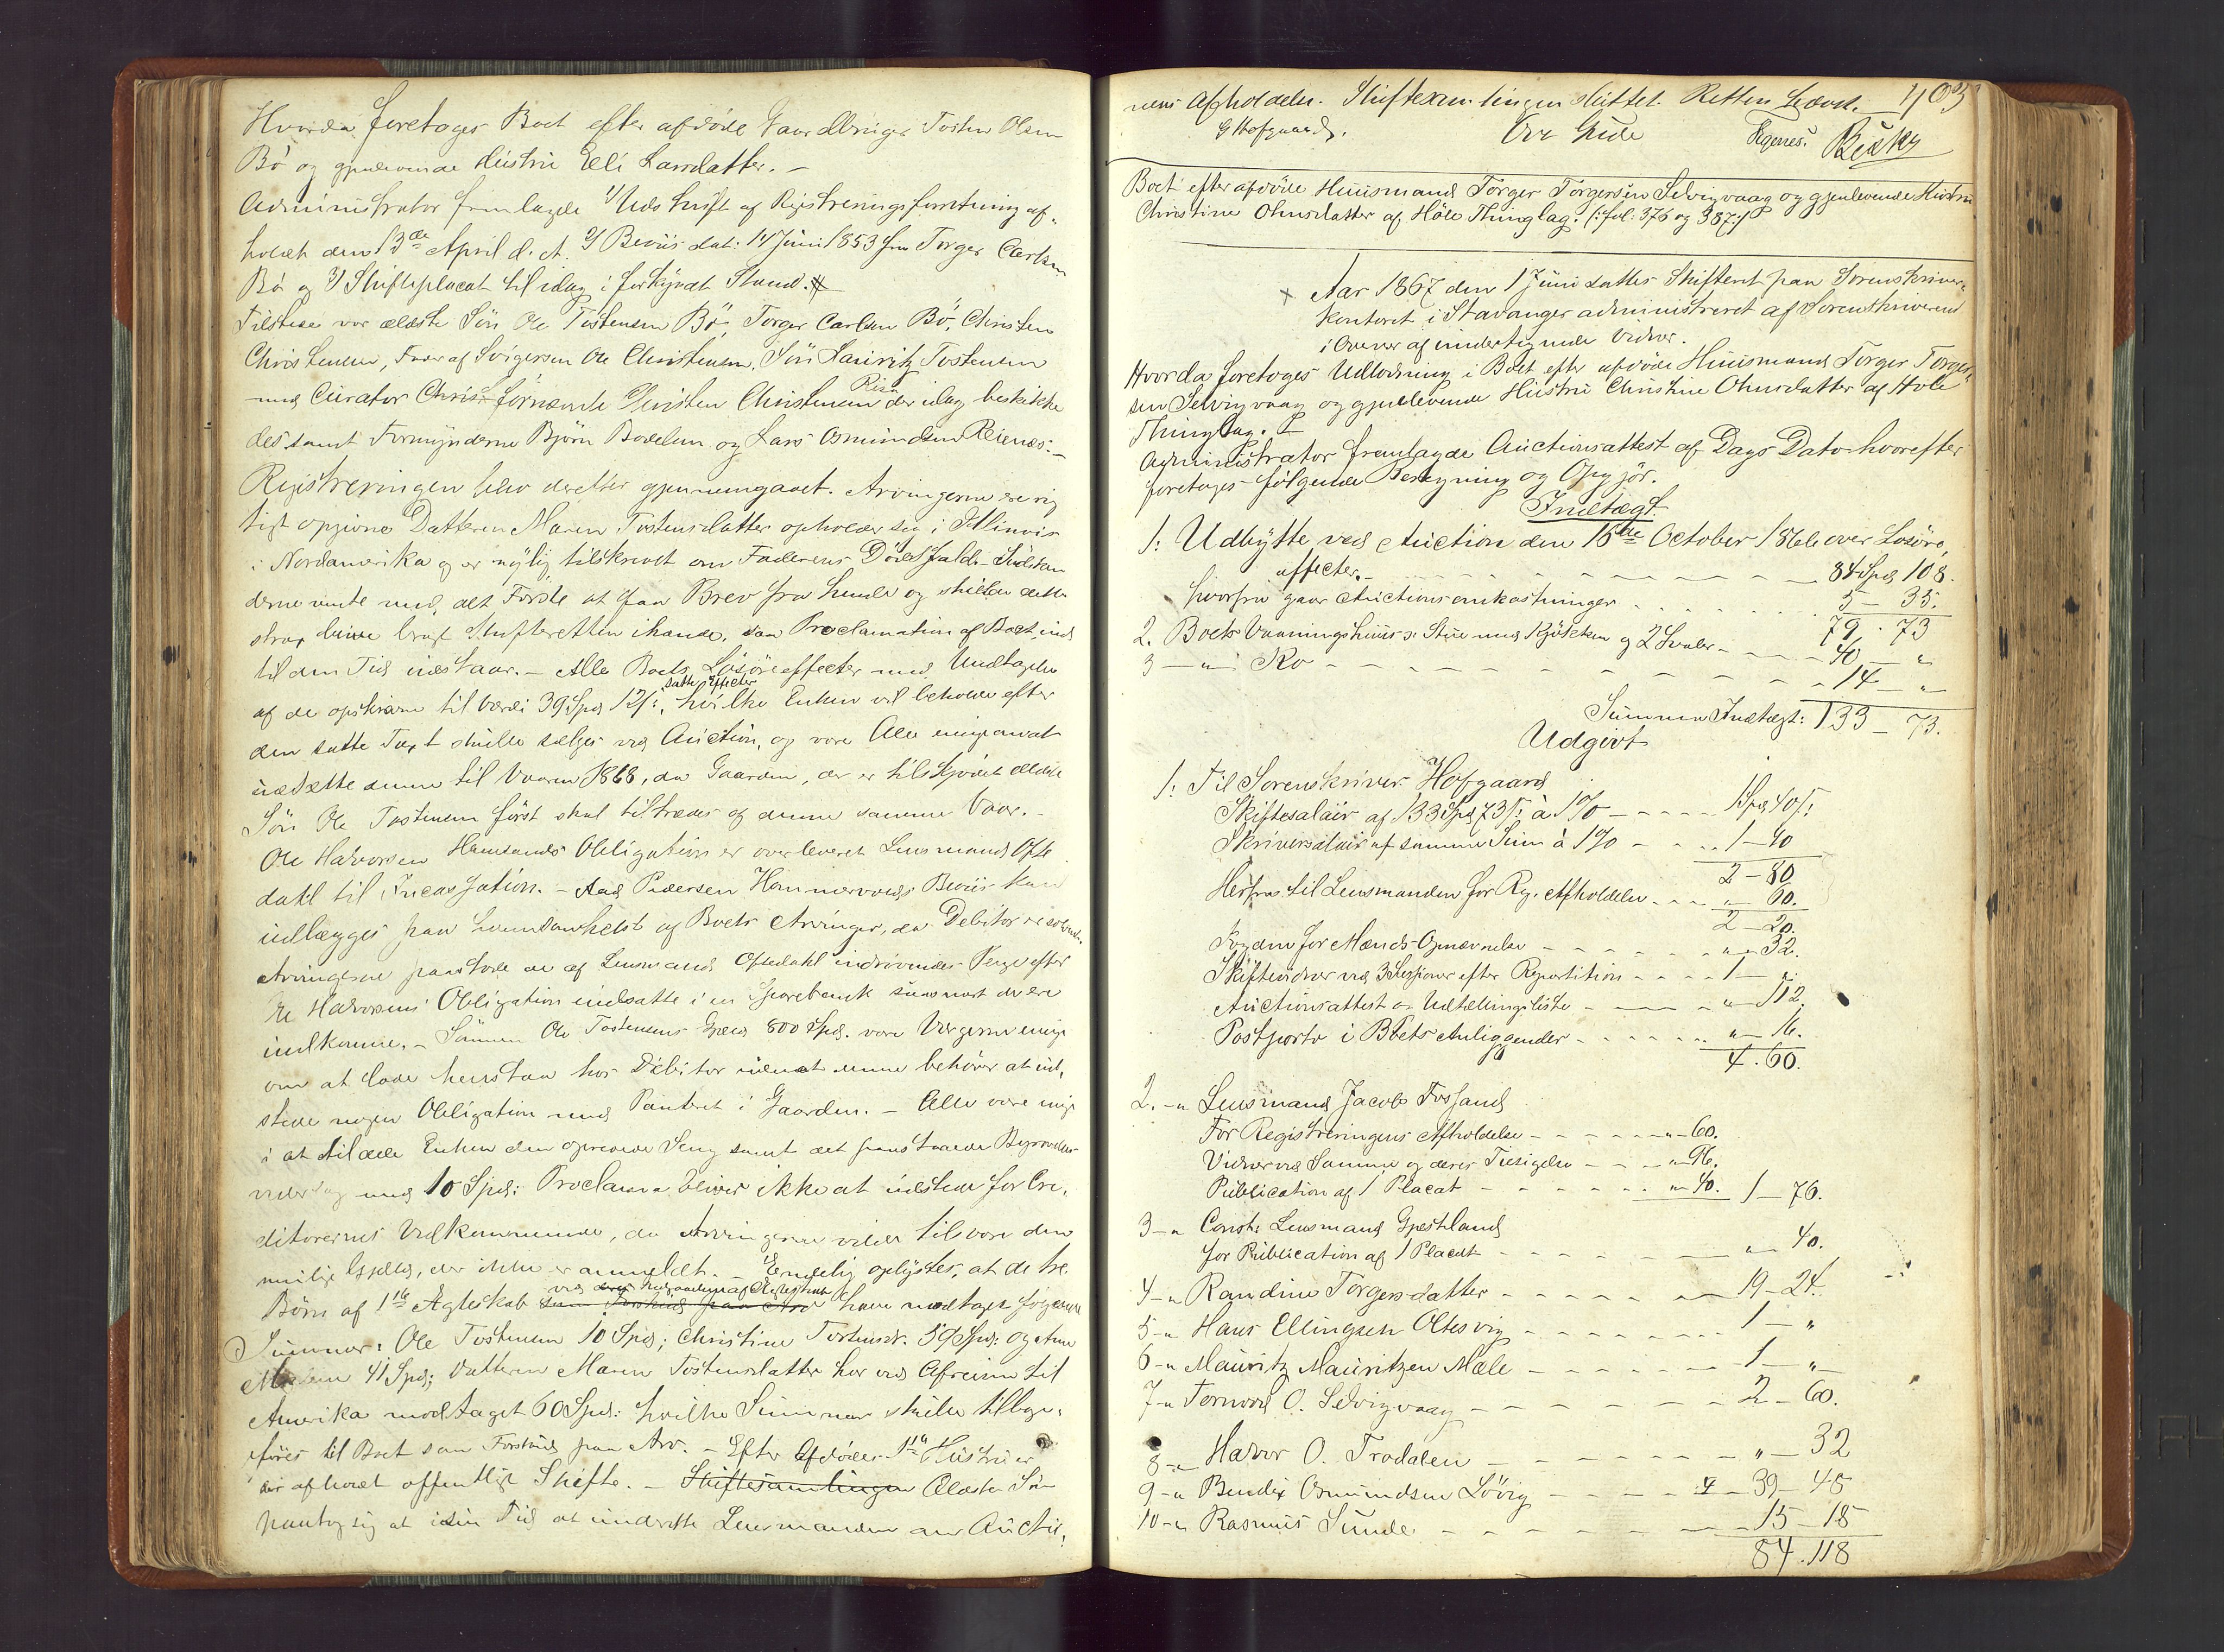 Hvorda foretoges Boet efter afdøde Gaardbruger Tosten Olsen
Bø og gjenlevende Hustru Elli Larsdatter. –
Administrator fremlagde 1/ Udskrift af Registreringsforretning af-
holdt den 13de April d. A. 2/ Beviis dat: 14 Juni 1853 fra Torger Carlsen
Bø og 3/ Skifteplacat til idag i forkyndt Stand.
Tilstede var ældste Søn Ole Tostensen Bø, Torger Carlsen Bø, Christen
Christensen, Fader af Svigersøn Ole Christensen, Søn Lauritz Tostensen
med Curator fornævnte Christen Christensen Risa der idag beskikke
des samt Formynderne Bjørn Bodelsen og Lars Osmundsen Reienæs. –
Registreringen blev derefter gjennemgaaet. Arvingerne ere rig
tigt opgivne Datteren Maren Tostensdatter opholder sig i Illinois
i Nordamerika og er nylig tilskrevet om Faderens Dødsfald.
derne vente med det Første at faa Brev fra hende og skulde dette
strax blive bragt Skifteretten ihænde, da Proclamation af Boet ind
til den Tid udstaar. – Alle Boets Løsøreeffecter med Undtagelse
af de opskrevne til Værdi 39 Spd 12 s: satte Effecter, hvilke Enken vil beholde efter
den satte Taxt skulle sælges ved Auction, og vare Alle enige om at
udsætte denne til Vaaren 1868, da Gaarden, der er tilskjødet ældste
Søn Ole Tostensen først skal tiltrædes af denne samme Vaar. –
Ole Halvorsen Hamsands Obligation er overleveret Lensmand Ofte
dahl til Incassation. – Aad Pedersen Hammervolds Beviis kan
udlægges paa hvemsomhelst af Boets Arvinger, da Debitor er
Arvingerne paastode de af Lensmand Oftedahl inddrivendes Penge efter
Ole Halvorsens Obligation indsatte i en Sparebank saasnart de ere
indkomne. – Sønnen Ole Tostensens Gjæld 800 Spd. vare Værgerne enige
om at lade henstaa hos Debitor uden at denne behøver at ud-
stede nogen Obligation med Panteret i Gaarden. – Alle vare enige
i at tildele Enken den opredede Seng samt det paastaaede
vederlag med 10 Spd: Proclama bliver ikke at udstede for Cre-
ditorernes Vedkommende, da Arvingerne ville tilsvare den
mulige Gjæld, der ikke er anmeldt. – Endelig oplystes, at de tre
Børn af 1ste Ægteskab ved deres Indgaaelse af Ægteskab som Forskud paa Arv have modtaget følgende
Summer: Ole Tostensen 10 Spd; Christine Tostensdr. 39 Spd: og Anne
Malene 41 Spd; Datteren Maren Tostensdatter har ved Afreisen til
Amerika modtaget 60 Spd: hvilke Summer skulle tillæge-
føres til Boet som Forskud paa Arv. – Efter Afdødes 1ste Hustru er
ei afholdt offentligt Skifte. – Skiftesamlingen Ældste Søn
paatog sig at i sin Tid at underrette Lensmanden om Auctio-
nens Afholdelse. Skiftesamlingen sluttet. Retten hævet. 403
GHofgaard. Ove Gude Egenes. Risky
Boet efter afdøde Huusmand Torger Torgersen Selvigvaag og gjenlevende Hustru
Christine Ohmsdatter af Høle Thinglag. /: fol. 376 og 387 :/
× Aar 1867 den 1 Juni sattes Skifteret paa Sorenskriver-
kontoret i Stavanger administreret af Sorenskriveren
i Overvær af undertegnede Vidner.
Hvorda foretoges Udlodning i Boet efter afdøde Huusmand Torger Torger-
sen Selvigvaag og gjenlevende Hustru Christine Ohmsdatter af Høle
Thinglag.
Administrator fremlagde Auctionsattest af Dags Dato hvorefter
foretoges følgende Beregning og Opgjør.
Indtægt.
1: Udbytte ved Auction den 16de October 1866 over Løsøre
effecter. – 84 Spd 108.
hvorfra gaar Auctionsomkostninger 5 – 35.
79 . 73
2. Boets Vaaningshuus: Stue med Kjøkken og 2 Svaler – 40 – "
3 – " – Ko – 14 – "
Summa Indtægt: 133 – 73.
Udgivt
1: Til Sorenskriver Hofgaard
Skiftesalair af 133 Spd 73 s: à 1% – 1 Spd 40 s:
Skriversalair af samme Sum à 1% – 1 – 40
2 – 80
Herfra til Lensmanden for Reg. Afholdelse – " 60.
2 – 20.
Fogden for Mænds Opnævnelse – " – 32.
Skiftevidner ved 3 Sessioner efter Repartition – 1 – "
Auctionsattest & Udtællingsliste – " – 112.
Postporto i Boets Anliggender – " – 16.
4 . 60.
2. – " Lensmand Jacob Fossand
For Registreringens Afholdelse – " – 60.
Vidner ved Samme og deres Tilsigelse – " – 96.
Publication af 1 Placat – " – 40. 1 – 76.
3 – " Const: Lensmand Gjestland
for Publication af 1 Placat – " – 40.
4 – " Randine Torgersdatter – 19 – 24.
5 – " Hans Ellingsen Oltesvig – 1 – "
6 – " Mauritz Mauritzen Mæle – 1 – "
7 – " Tormod O. Selvigvaag – 2 – 60.
8 – " Halvor O. Trodalen – " – 32
9 – " Bendix Osmundsen Løvig – 39 – 48
10 – " Rasmus Sunde. – 15 – 18
84 . 118